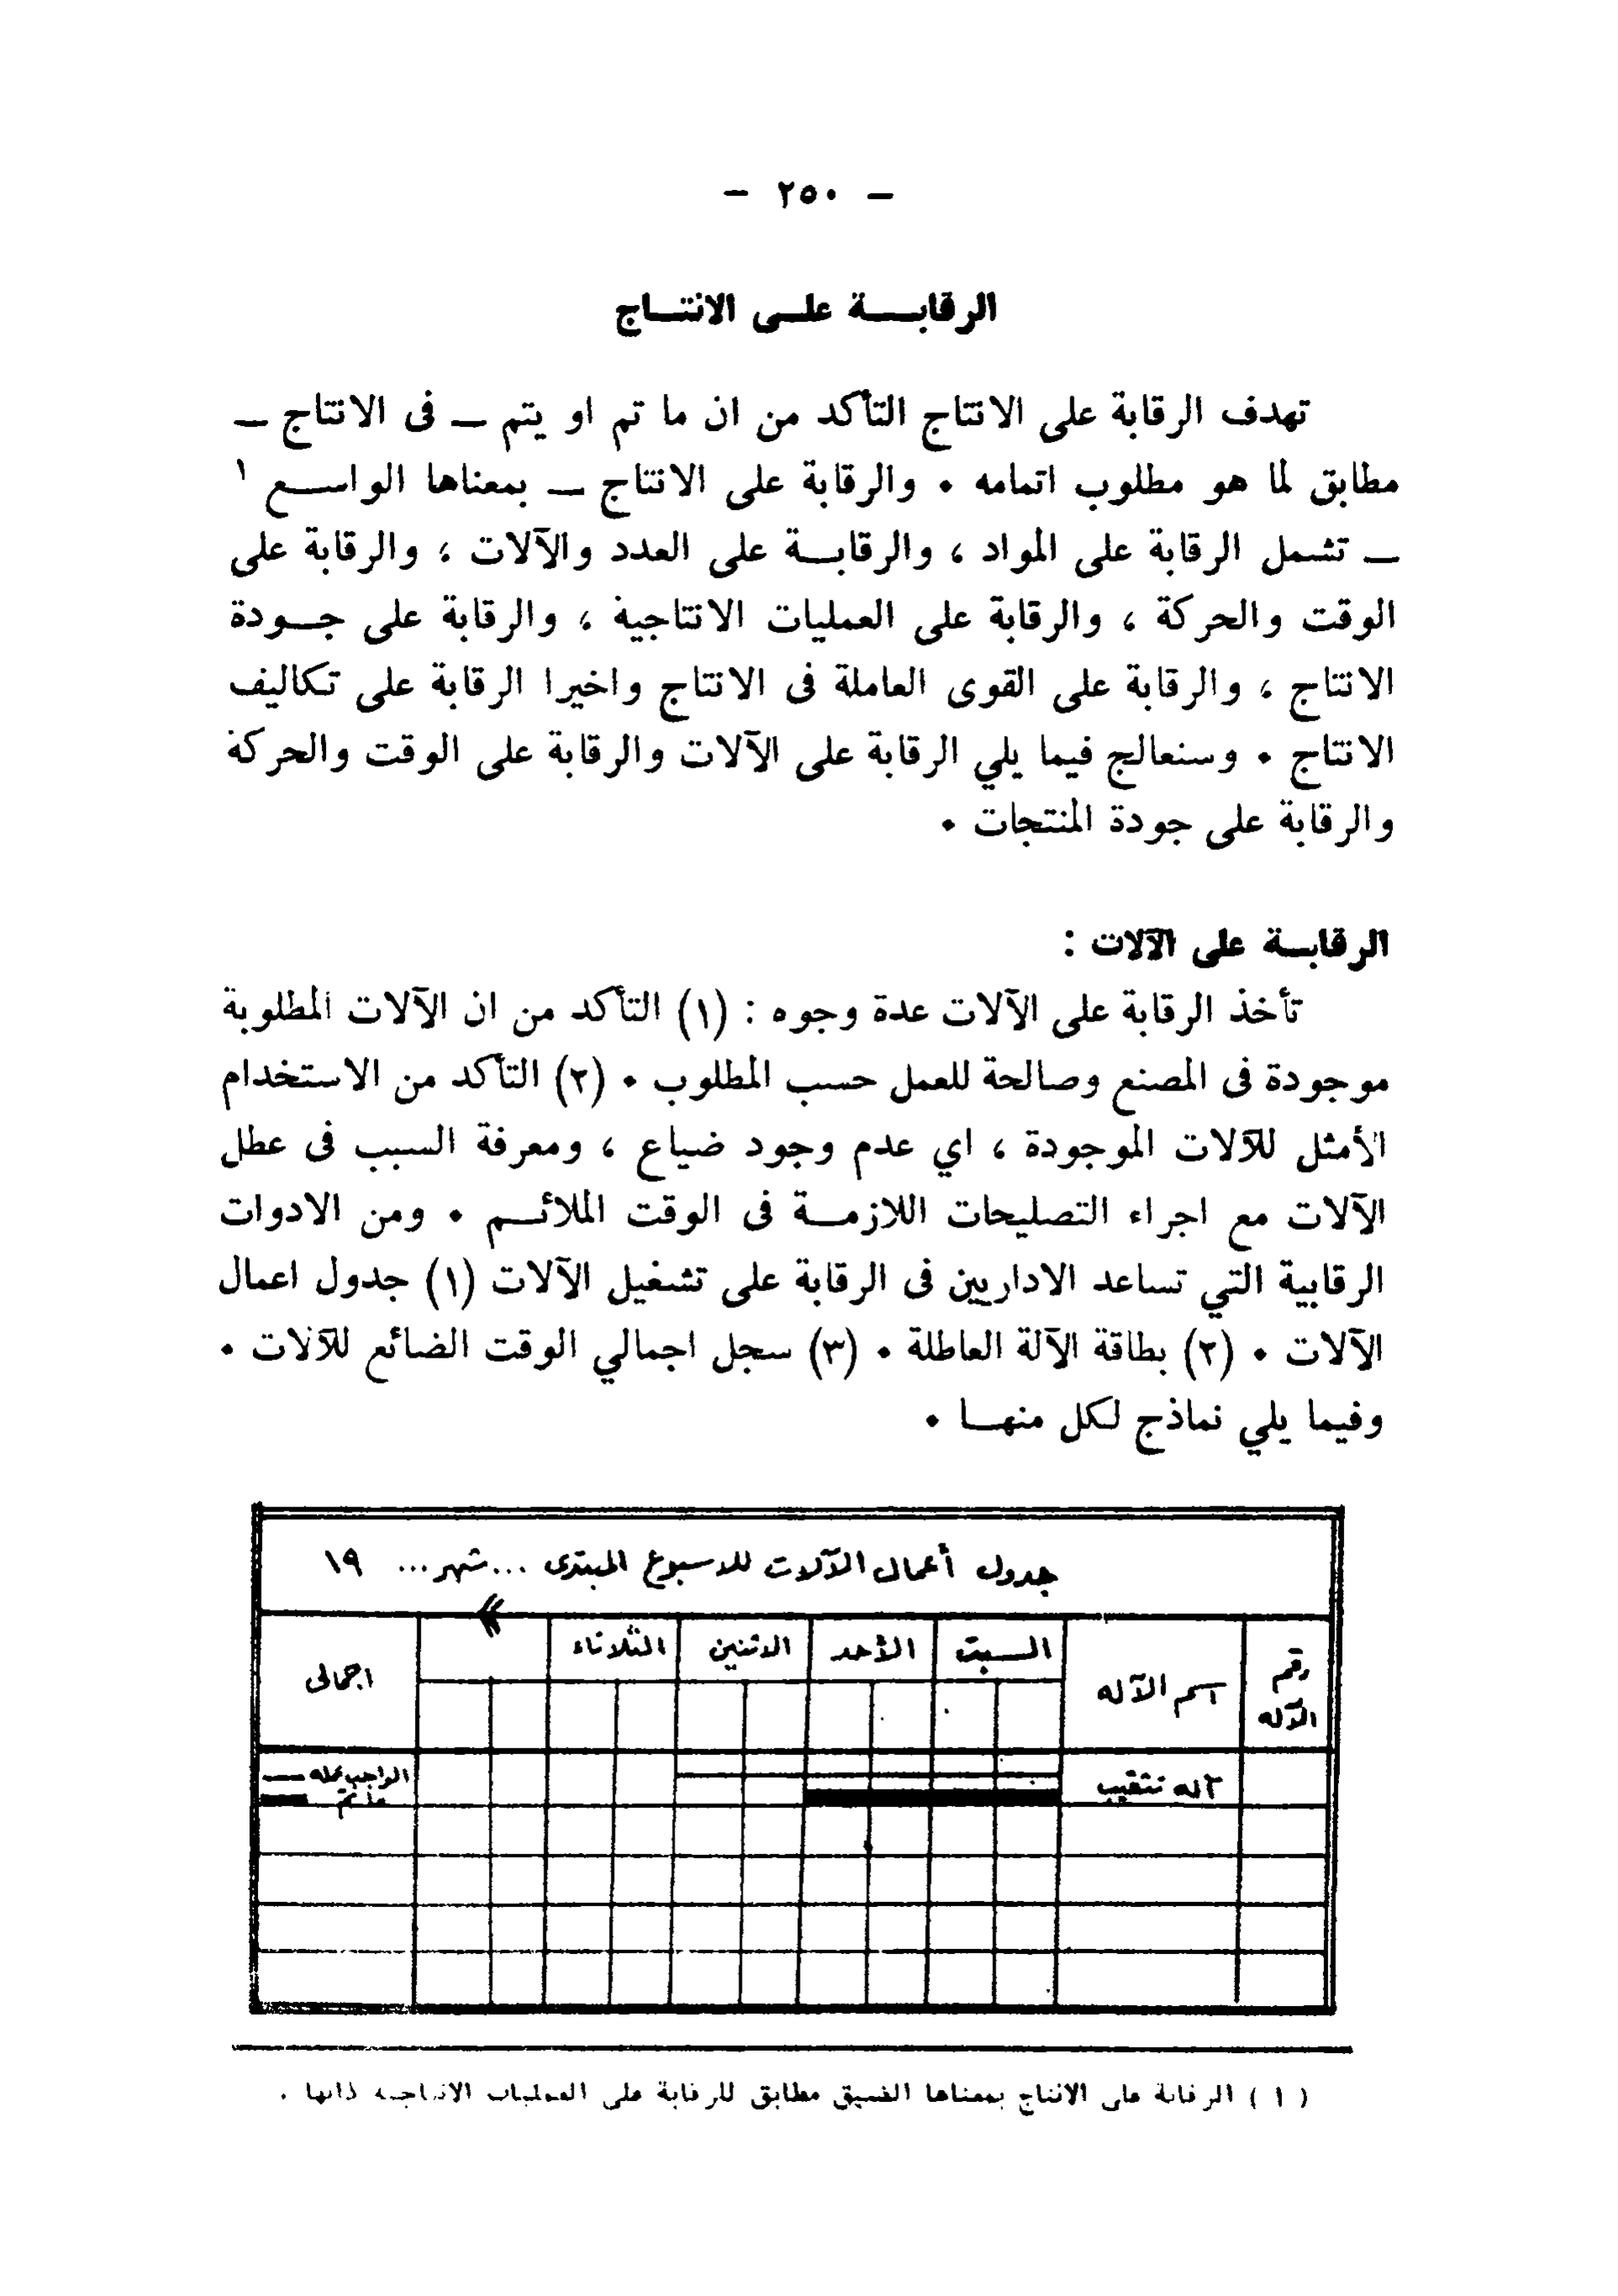 - ٢٥٠ -
الرقابة على الانتاج
تهدف الرقابة على الانتاج التأكد من ان ما تم او يتم — فى الانتاج —
مطابق لما هو مطلوب اتمامه . والرقابة على الانتاج — بمعناها الواسع ١
— تشمل الرقابة على المواد ، والرقابة على العدد والآلات ، والرقابة على
الوقت والحركة ، والرقابة على العمليات الانتاجية ، والرقابة على جودة
الانتاج ، والرقابة على القوى العاملة فى الانتاج واخيرا الرقابة على تكاليف
الانتاج . وسنعالج فيما يلي الرقابة على الآلات والرقابة على الوقت والحركة
والرقابة على جودة المنتجات .
الرقابة على الآلات :
تأخذ الرقابة على الآلات عدة وجوه : (١) التأكد من ان الآلات المطلوبة
موجودة فى المصنع وصالحة للعمل حسب المطلوب . (٢) التأكد من الاستخدام
الأمثل للآلات الموجودة ، اي عدم وجود ضياع ، ومعرفة السبب فى عطل
الآلات مع اجراء التصليحات اللازمة فى الوقت الملائم . ومن الادوات
الرقابية التي تساعد الاداريين فى الرقابة على تشغيل الآلات (١) جدول اعمال
الآلات . (٢) بطاقة الآلة العاطلة . (٣) سجل اجمالي الوقت الضائع للآلات .
وفيما يلي نماذج لكل منها .
جدول أعمال الآلات للاسبوع المبتدى ... شهر ... ١٩
رقم الآله
اسم الآله
السبت
الأحد
الاثنين
الثلاثاء
اجمالى
آله تثقيب
الواجب عمله
ما تم
( ١ ) الرقابة على الانتاج بمعناها الضيق مطابق للرقابة على العمليات الانتاجية ذاتها .